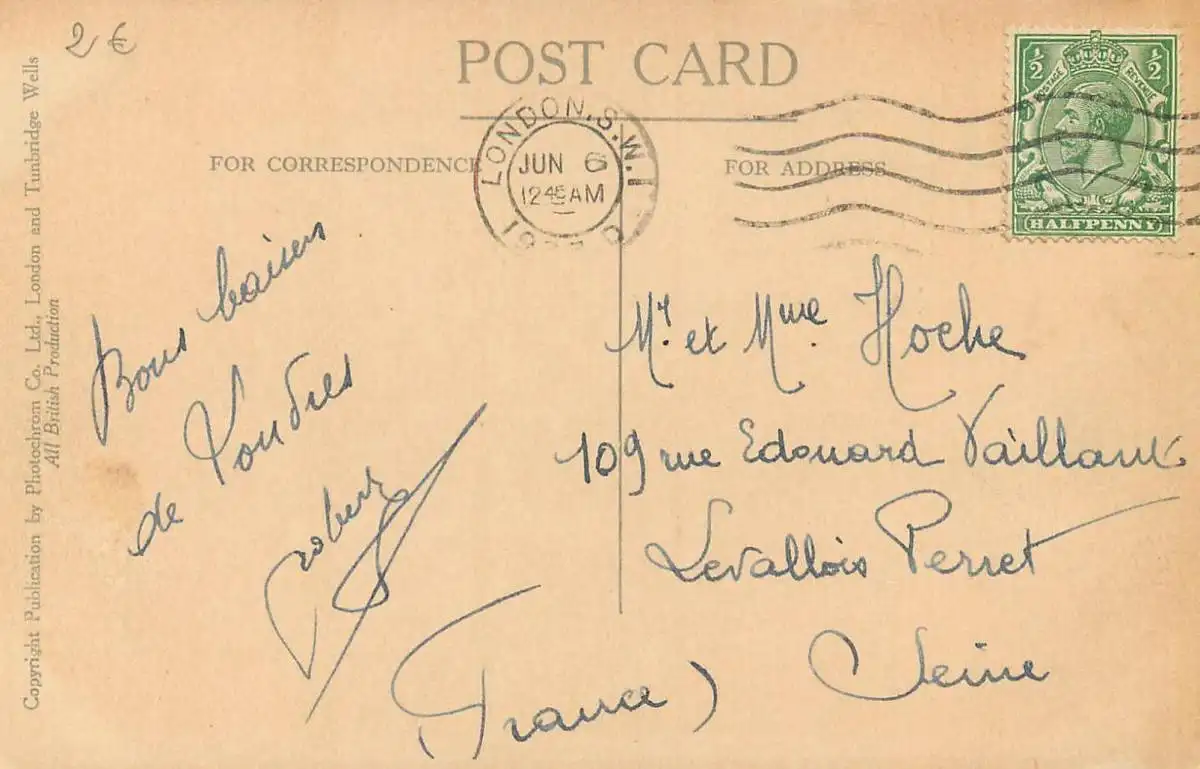 2 €
POST CARD
FOR CORRESPONDENCE
FOR ADDRESS
LONDON.S.W.1
JUN 6
12 45 AM
½ ½
POSTAGE REVENUE
HALFPENNY
Copyright Publication by Photochrom Co. Ltd., London and Tunbridge Wells
All British Production
Bons baisers
de Londres
Robert
Mr. et Mme Hoche
109 rue Edouard Vaillant
Levallois Perret
Seine
(France)